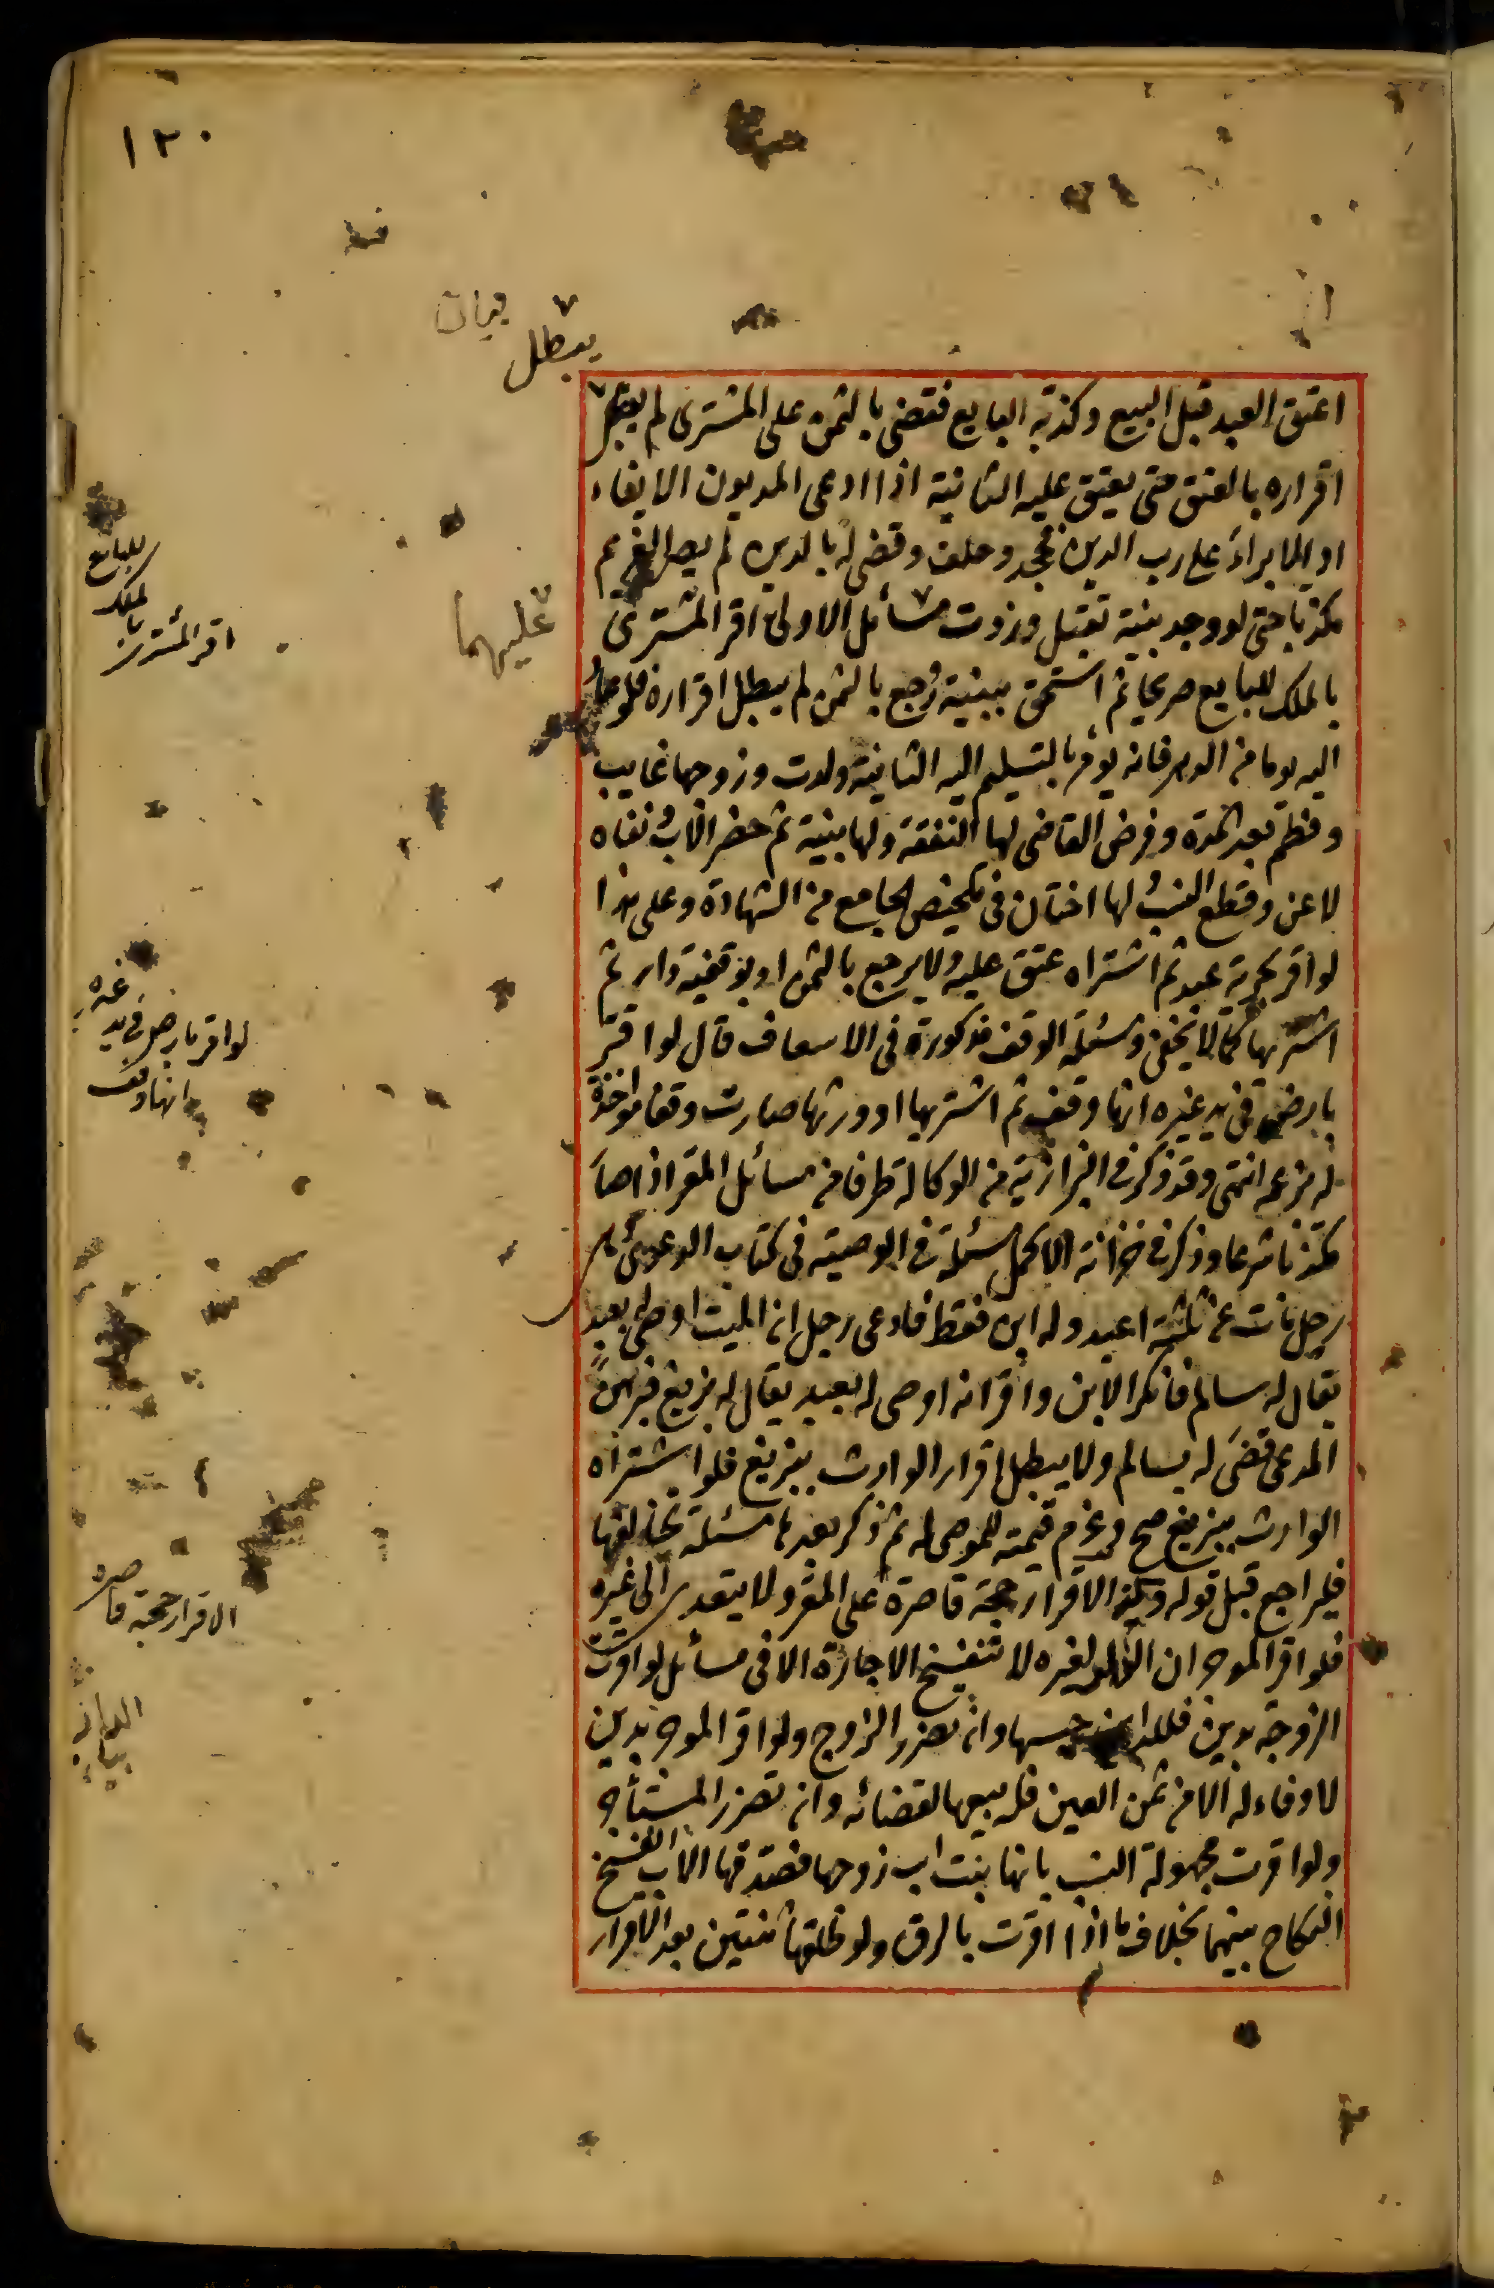 ١٢٠
بيان
يبطل
اعتق العبد قبل البيع وكذبه البايع فقضى بالثمن على المشترى لم يبطل
اقراره بالعتق حتى يعتق عليه الثانية اذا ادعى المديون الايفاء
او الابراء على رب الدين فجحد وحلف وقضى له بالدين لم يصر الغريم
مكذبا حتى لو وجد بينة تقبل وزدت مسائل الاولى اقر المشترى
بالملك للبايع صريحا ثم استحق ببينة ورجع بالثمن لم يبطل اقراره فلو عاد
اليه يوما من الدهر فانه يؤمر بالتسليم اليه الثانية ولدت وزوجها غايب
وفطم بعد المدة وفرض القاضى لها النفقة ولها بينة ثم حضر الاب ونفاه
لاعن وقطع النسب ولها اختان فى تلخيص الجامع من الشهادة وعلى هذا
لو اقر بحرية عبد ثم اشتراه عتق عليه ولا يرجع بالثمن او بوقفية دار ثم
اشتريها كما لا يخفى ومسئلة الوقف مذكورة فى الاسعاف قال لو اقر
بارض فى يد غيره انها وقف ثم اشتريها او ورثها صارت وقفا مواخذة
له بزعمه انتهى وقد ذكر فى البزازية من الوكالة طرفا من مسائل المقر اذا صار
مكذبا شرعا وذكر فى خزانة الاكمل مسئلة فى الوصية فى كتاب الدعوى
رجل مات عن ثلثة اعبد وله ابن فقط فادعى رجل ان الميت اوصى له بعبد
يقال له سالم فانكر الابن واقر انه اوصى له بعبد يقال له بزيغ فبرهن
المدعى قضى له بسالم ولا يبطل اقرار الوارث ببزيغ فلو اشتراه
الوارث ببزيغ صح وغرم قيمته للموصى له ثم ذكر بعدها مسئلة تخالفها
فليراجع قبل قوله وكذ الاقرار حجة قاصرة على المقر ولا يتعدى الى غيره
فلو اقر الموجر ان الدار لغيره لا تنفسخ الاجارة الا فى مسائل لو اقرت
الزوجة بدين فللداين حبسها وان تضرر الزوج ولو اقر الموجر بدين
لا وفاء له الا من ثمن العين فله بيعها لقضائه وان تضرر المستأجر
ولو اقرت مجهولة النسب بانها بنت اب زوجها فصدقها الاب انفسخ
النكاح بينهما بخلاف ما اذا اقرت بالرق ولو طلقها ثنتين بعد الاقرار
عليهما
اقر المشترى
بالملك
للبايع
لو اقر بارض فى يد
غيره
انها وقف
الاقرار حجة قاصره